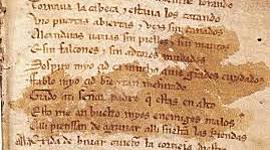 mientre lorando
Tornaua la cabeça y estaua los catando
Vio puertas abiertas y vços sin cañados
Alcandaras uazias sin pielles y sin mantos
E sin falcones y sin adtores mudados
Sospiro myo çid ca mucho auie grandes cuydados
Ffablo myo çid bien y tan mesurado
Grado ati señor padre que estas en alto
Esto me an buelto myos enemigos malos
Alli pienssan de aguijar alli sueltan las Riendas
Ala Exida de biuar ouieron la corneia diestra